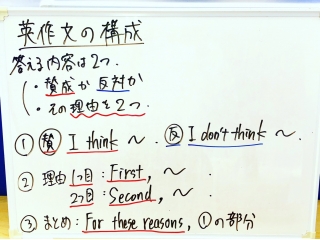 英作文の構成
答える内容は2つ.
・賛成か反対か
・その理由を2つ.
① 賛 I think ~. 反 I don't think ~.
② 理由1つ目: First, ~.
2つ目: Second, ~.
③ まとめ: For these reasons, ①の部分